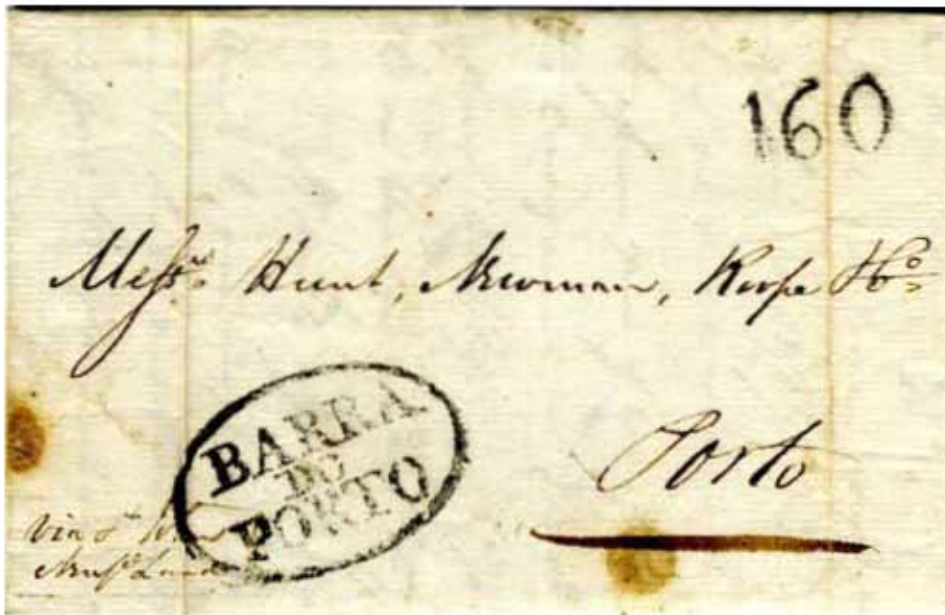 160
Messrs Hunt, Newman, Roope &Co
Porto
BARRA
DO
PORTO
via St